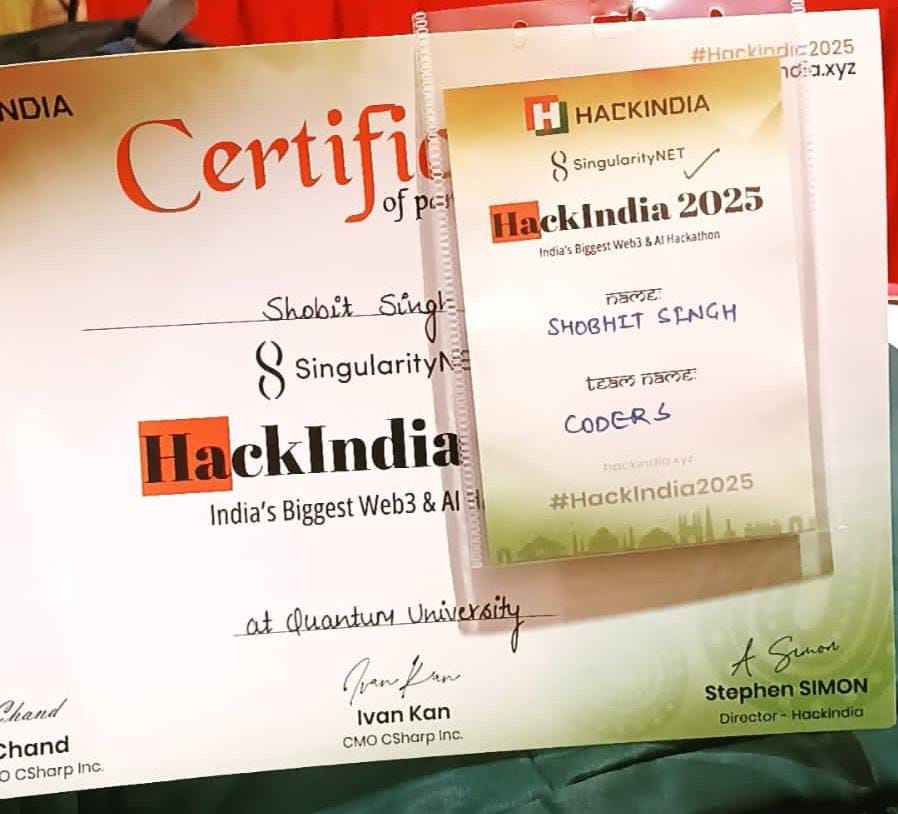 NDIA
#Hackindia2025
ndia.xyz
Certific
of par
Shobit Singh
SingularityNE
HackIndia
India's Biggest Web3 & AI H
at Quantum University
Chand
Chand
O CSharp Inc.
Ivan Kan
Ivan Kan
CMO CSharp Inc.
A Simon
Stephen SIMON
Director - HackIndia
H HACKINDIA
SingularityNET
HackIndia 2025
India's Biggest Web3 & AI Hackathon
name:
SHOBHIT SINGH
team name:
CODERS
hackindia.xyz
#HackIndia2025